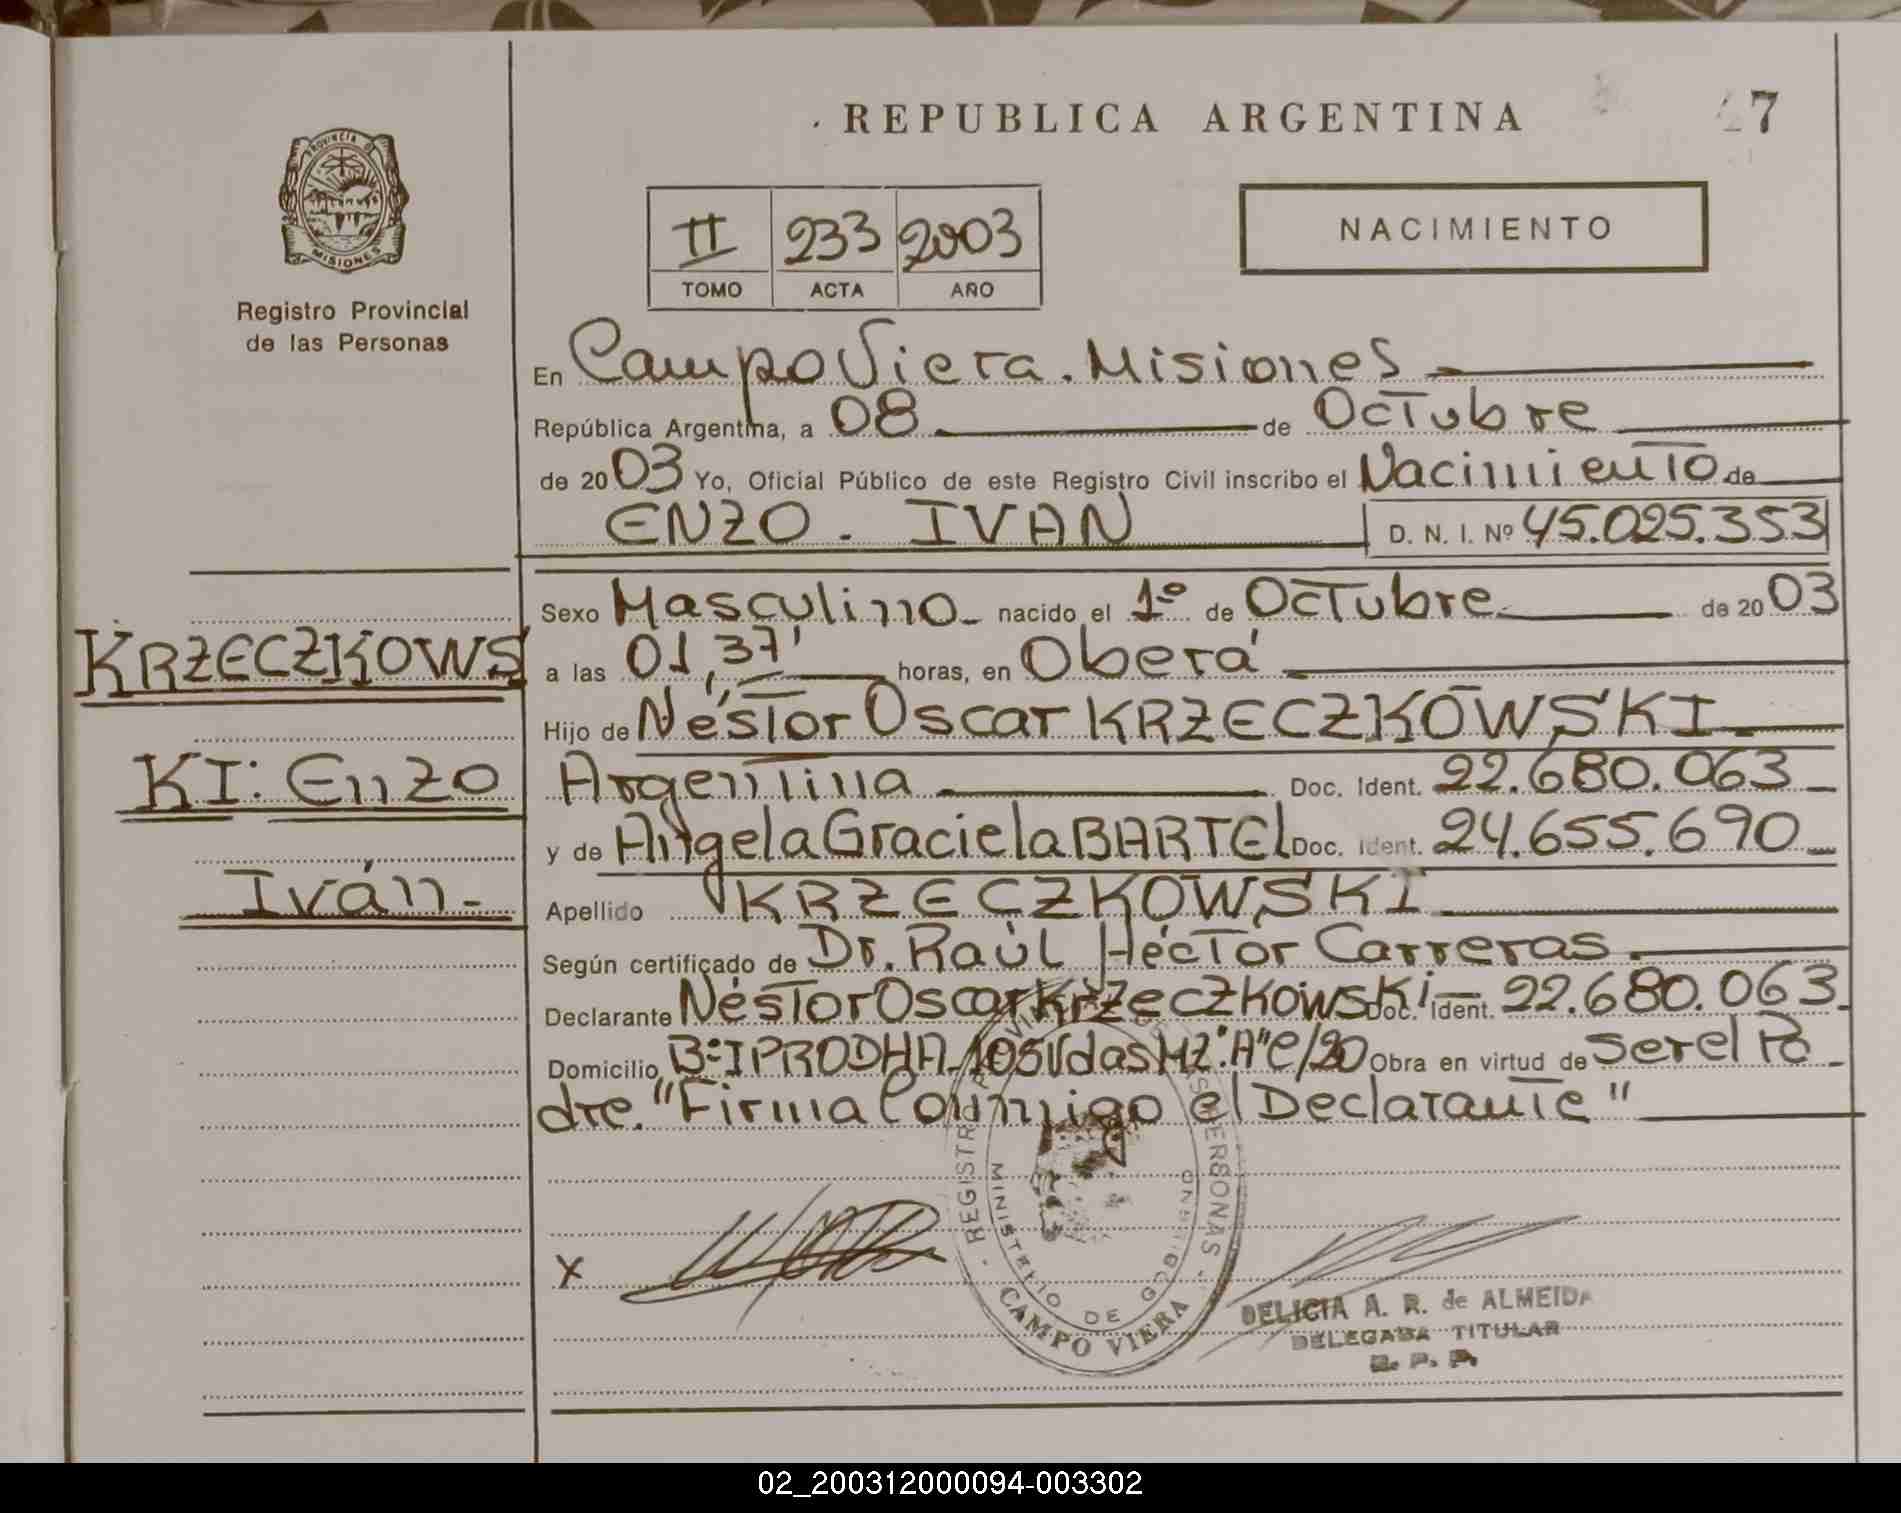 REPUBLICA ARGENTINA
47
PROVINCIA D
MISIONES
Registro Provincial
de las Personas
II 233 2003
TOMO ACTA AÑO
NACIMIENTO
En Campo Viera. Misiones
República Argentina, a 08 de Octubre
de 2003 Yo, Oficial Público de este Registro Civil inscribo el Nacimiento de
ENZO. IVAN D. N. I. Nº 45.025.353
KRZECZKOWS
KI: Enzo
Iván.-
Sexo Masculino nacido el 1º de Octubre de 2003
a las 01,37' horas, en Oberá
Hijo de Néstor Oscar KRZECZKOWSKI
Argentina Doc. Ident. 22.680.063
y de Angela Graciela BARTEL Doc. Ident. 24.655.690
Apellido KRZECZKOWSKI
Según certificado de Dr. Raúl Héctor Carreras
Declarante Néstor Oscar Krzeczkowski Doc. Ident. 22.680.063
Domicilio Bº IPRODHA 105 Vdas Mz "A" C/20 Obra en virtud de ser el Pa
dre. "Firma Conmigo el Declarante"
X
REGISTRO PERSONAS
MINISTERIO DE GOBIERNO
CAMPO VIERA
DELICIA A. R. de ALMEIDA
DELEGADA TITULAR
R. P. P.
02_200312000094-003302